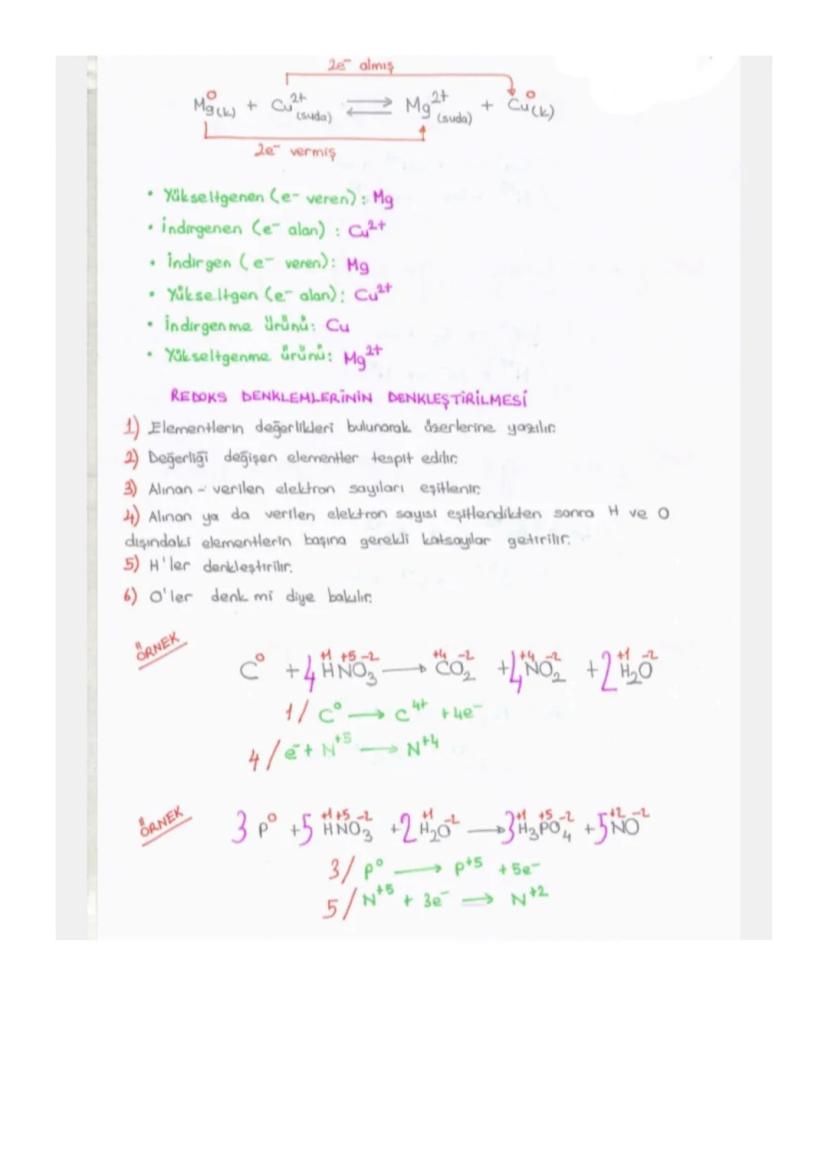 2e⁻ almış
Mg⁰(k) + Cu²⁺(suda) ⇌ Mg²⁺(suda) + Cu⁰(k)
2e⁻ vermiş
• Yükseltgenen (e⁻ veren): Mg
• İndirgenen (e⁻ alan) : Cu²⁺
• İndirgen (e⁻ veren): Mg
• Yükseltgen (e⁻ alan): Cu²⁺
• İndirgenme ürünü: Cu
• Yükseltgenme ürünü: Mg²⁺
REDOKS DENKLEMLERİNİN DENKLEŞTİRİLMESİ
1) Elementlerin değerlikleri bulunarak üzerlerine yazılır.
2) Değerliği değişen elementler tespit edilir.
3) Alınan - verilen elektron sayıları eşitlenir.
4) Alınan ya da verilen elektron sayısı eşitlendikten sonra H ve O
dışındaki elementlerin başına gerekli katsayılar getirilir.
5) H'ler denkleştirilir.
6) O'ler denk mi diye bakılır.
ÖRNEK
+1 +5 -2 +4 -2 +4 -2 +1 -2
C⁰ + 4HNO₃ → CO₂ + 4NO₂ + 2H₂O
1/ C⁰ → C⁴⁺ + 4e⁻
4/ e⁻ + N⁺⁵ → N⁺⁴
ÖRNEK
+1 +5 -2 +1 -2 +1 +5 -2 +2 -2
3P⁰ + 5HNO₃ + 2H₂O → 3H₃PO₄ + 5NO
3/ P⁰ → P⁺⁵ + 5e⁻
5/ N⁺⁵ + 3e⁻ → N⁺²